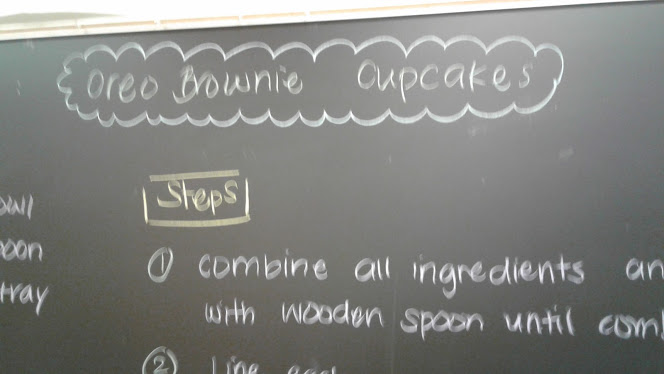 Oreo Brownie Cupcakes
Steps
spoon
tray
① combine all ingredients
with wooden spoon until
② Line